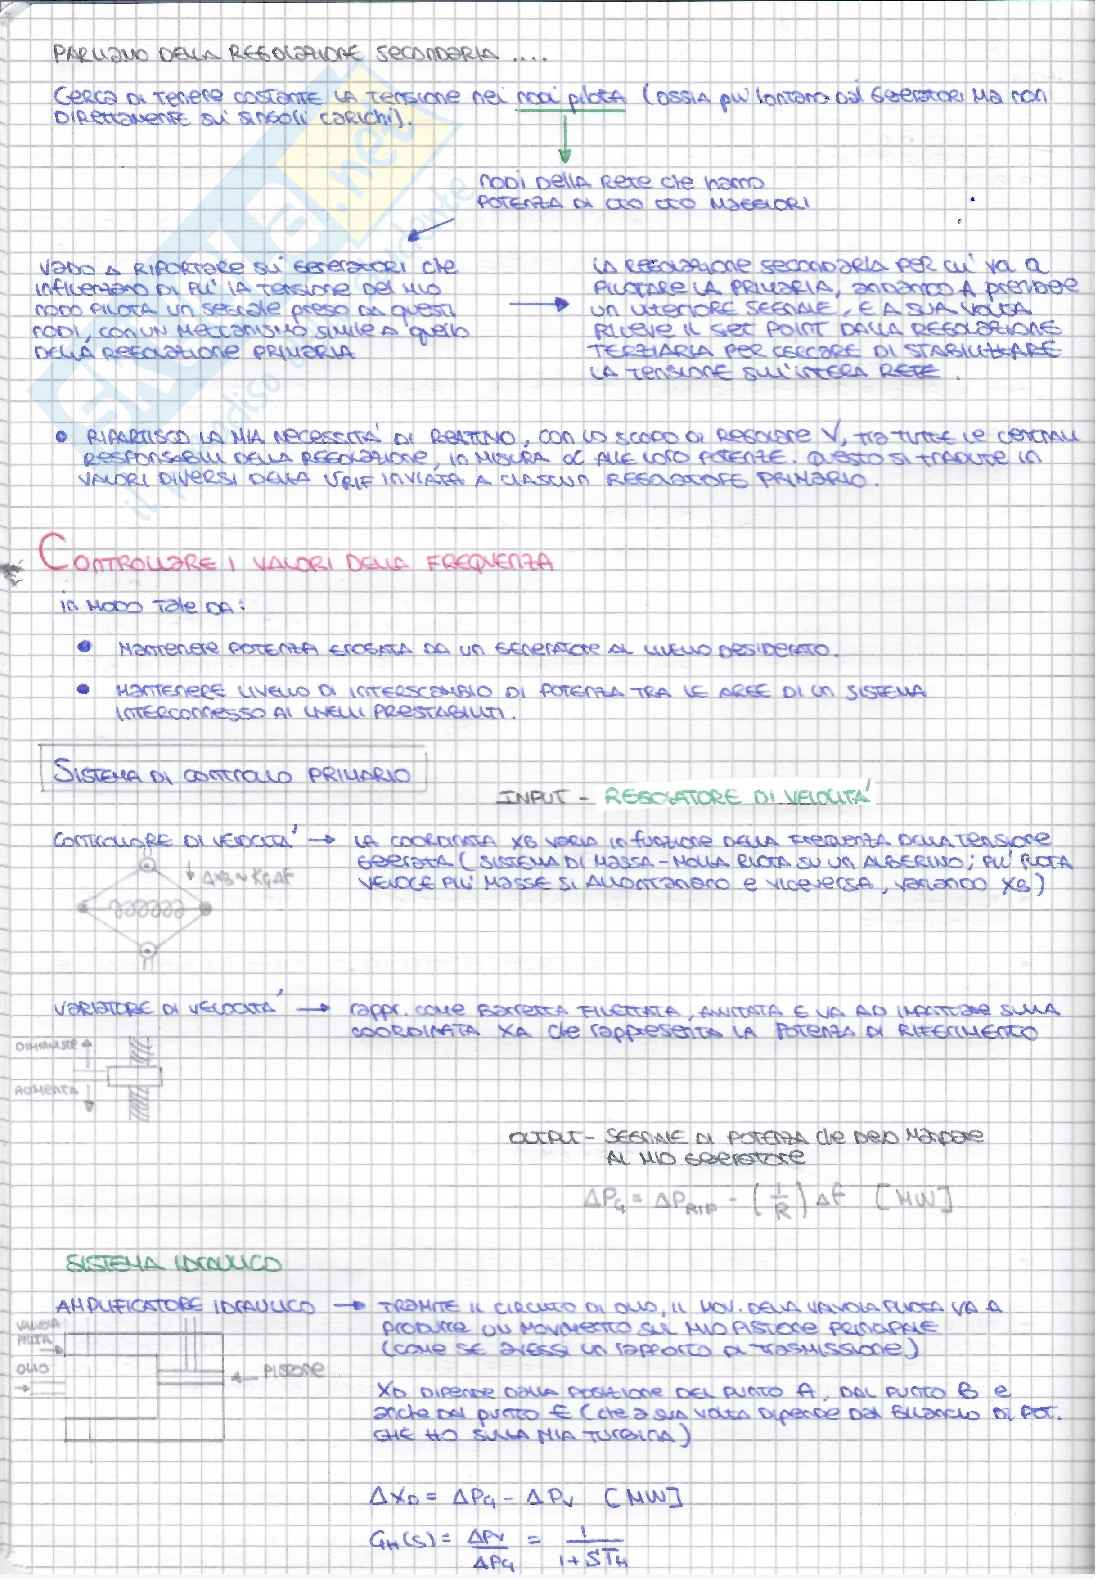 PARLIAMO DELLA REGOLAZIONE SECONDARIA ....
CERCA DI TENERE COSTANTE LA TENSIONE NEI NODI PILOTA (OSSIA PIU' LONTANO DAI GENERATORI MA NON
DIRETTAMENTE SUI SINGOLI CARICHI).
NODI DELLA RETE CHE HANNO
POTENZA DI CTO CTO MAGGIORI
VADO A RIPORTARE SUI GENERATORI CHE
INFLUENZANO DI PIU' LA TENSIONE DEL MIO
NODO PILOTA UN SEGNALE PRESO DA QUESTI
NODI, CON UN MECCANISMO SIMILE A QUELLO
DELLA REGOLAZIONE PRIMARIA
LA REGOLAZIONE SECONDARIA PER CUI VA A
PILOTARE LA PRIMARIA, ANDANDO A PRENDERE
UN ULTERIORE SEGNALE, E A SUA VOLTA
RICEVE IL SET POINT DALLA REGOLAZIONE
TERZIARIA PER CERCARE DI STABILIZZARE
LA TENSIONE SULL'INTERA RETE.
• RIPARTISCO LA MIA NECESSITA' DI REATTIVO, CON LO SCOPO DI REGOLARE V, TRA TUTTE LE CENTRALI
RESPONSABILI DELLA REGOLAZIONE, IN MISURA ∝ ALLE LORO POTENZE. QUESTO SI TRADUCE IN
VALORI DIVERSI DELLA VRIF INVIATA A CIASCUN REGOLATORE PRIMARIO.
CONTROLLARE I VALORI DELLA FREQUENZA
IN MODO TALE DA:
• MANTENERE POTENZA EROGATA DA UN GENERATORE AL LIVELLO DESIDERATO.
• MANTENERE LIVELLO DI INTERSCAMBIO DI POTENZA TRA LE AREE DI UN SISTEMA
INTERCONNESSO AI LIVELLI PRESTABILITI.
SISTEMA DI CONTROLLO PRIMARIO
INPUT - REGOLATORE DI VELOCITA'
CONTROLLORE DI VELOCITA' → LA COORDINATA XB VARIA IN FUNZIONE DELLA FREQUENZA DELLA TENSIONE
GENERATA (SISTEMA DI MASSA-MOLLA RUOTA SU UN ALBERINO; PIU' RUOTA
VELOCE PIU' MASSE SI ALLONTANANO E VICEVERSA, VARIANDO XB)
ΔXB ∝ KGΔF
VARIATORE DI VELOCITA' → RAPPR. COME BARRETTA FILETTATA, AVVITATA E VA AD IMPATTARE SULLA
COORDINATA XA CHE RAPPRESENTA LA POTENZA DI RIFERIMENTO
DIMINUISCE
AUMENTA
OUTPUT - SEGNALE DI POTENZA CHE DEVO MANDARE
AL MIO GENERATORE
ΔPG = ΔPRIF - (1/R) Δf [MW]
SISTEMA IDRAULICO
AMPLIFICATORE IDRAULICO → TRAMITE IL CIRCUITO DI OLIO, IL MOV. DELLA VALVOLA PILOTA VA A
PRODURRE UN MOVIMENTO SUL MIO PISTONE PRINCIPALE
(COME SE AVESSI UN RAPPORTO DI TRASMISSIONE)
VALVOLA
PILOTA
OLIO
PISTONE
XD DIPENDE DALLA POSIZIONE DEL PUNTO A, DAL PUNTO B E
ANCHE DAL PUNTO E (CHE A SUA VOLTA DIPENDE DAL BILANCIO DI POT.
CHE HO SULLA MIA TURBINA)
ΔXD = ΔPG - ΔPV [MW]
GH(S) = ΔPV/ΔPG = 1/(1+STH)